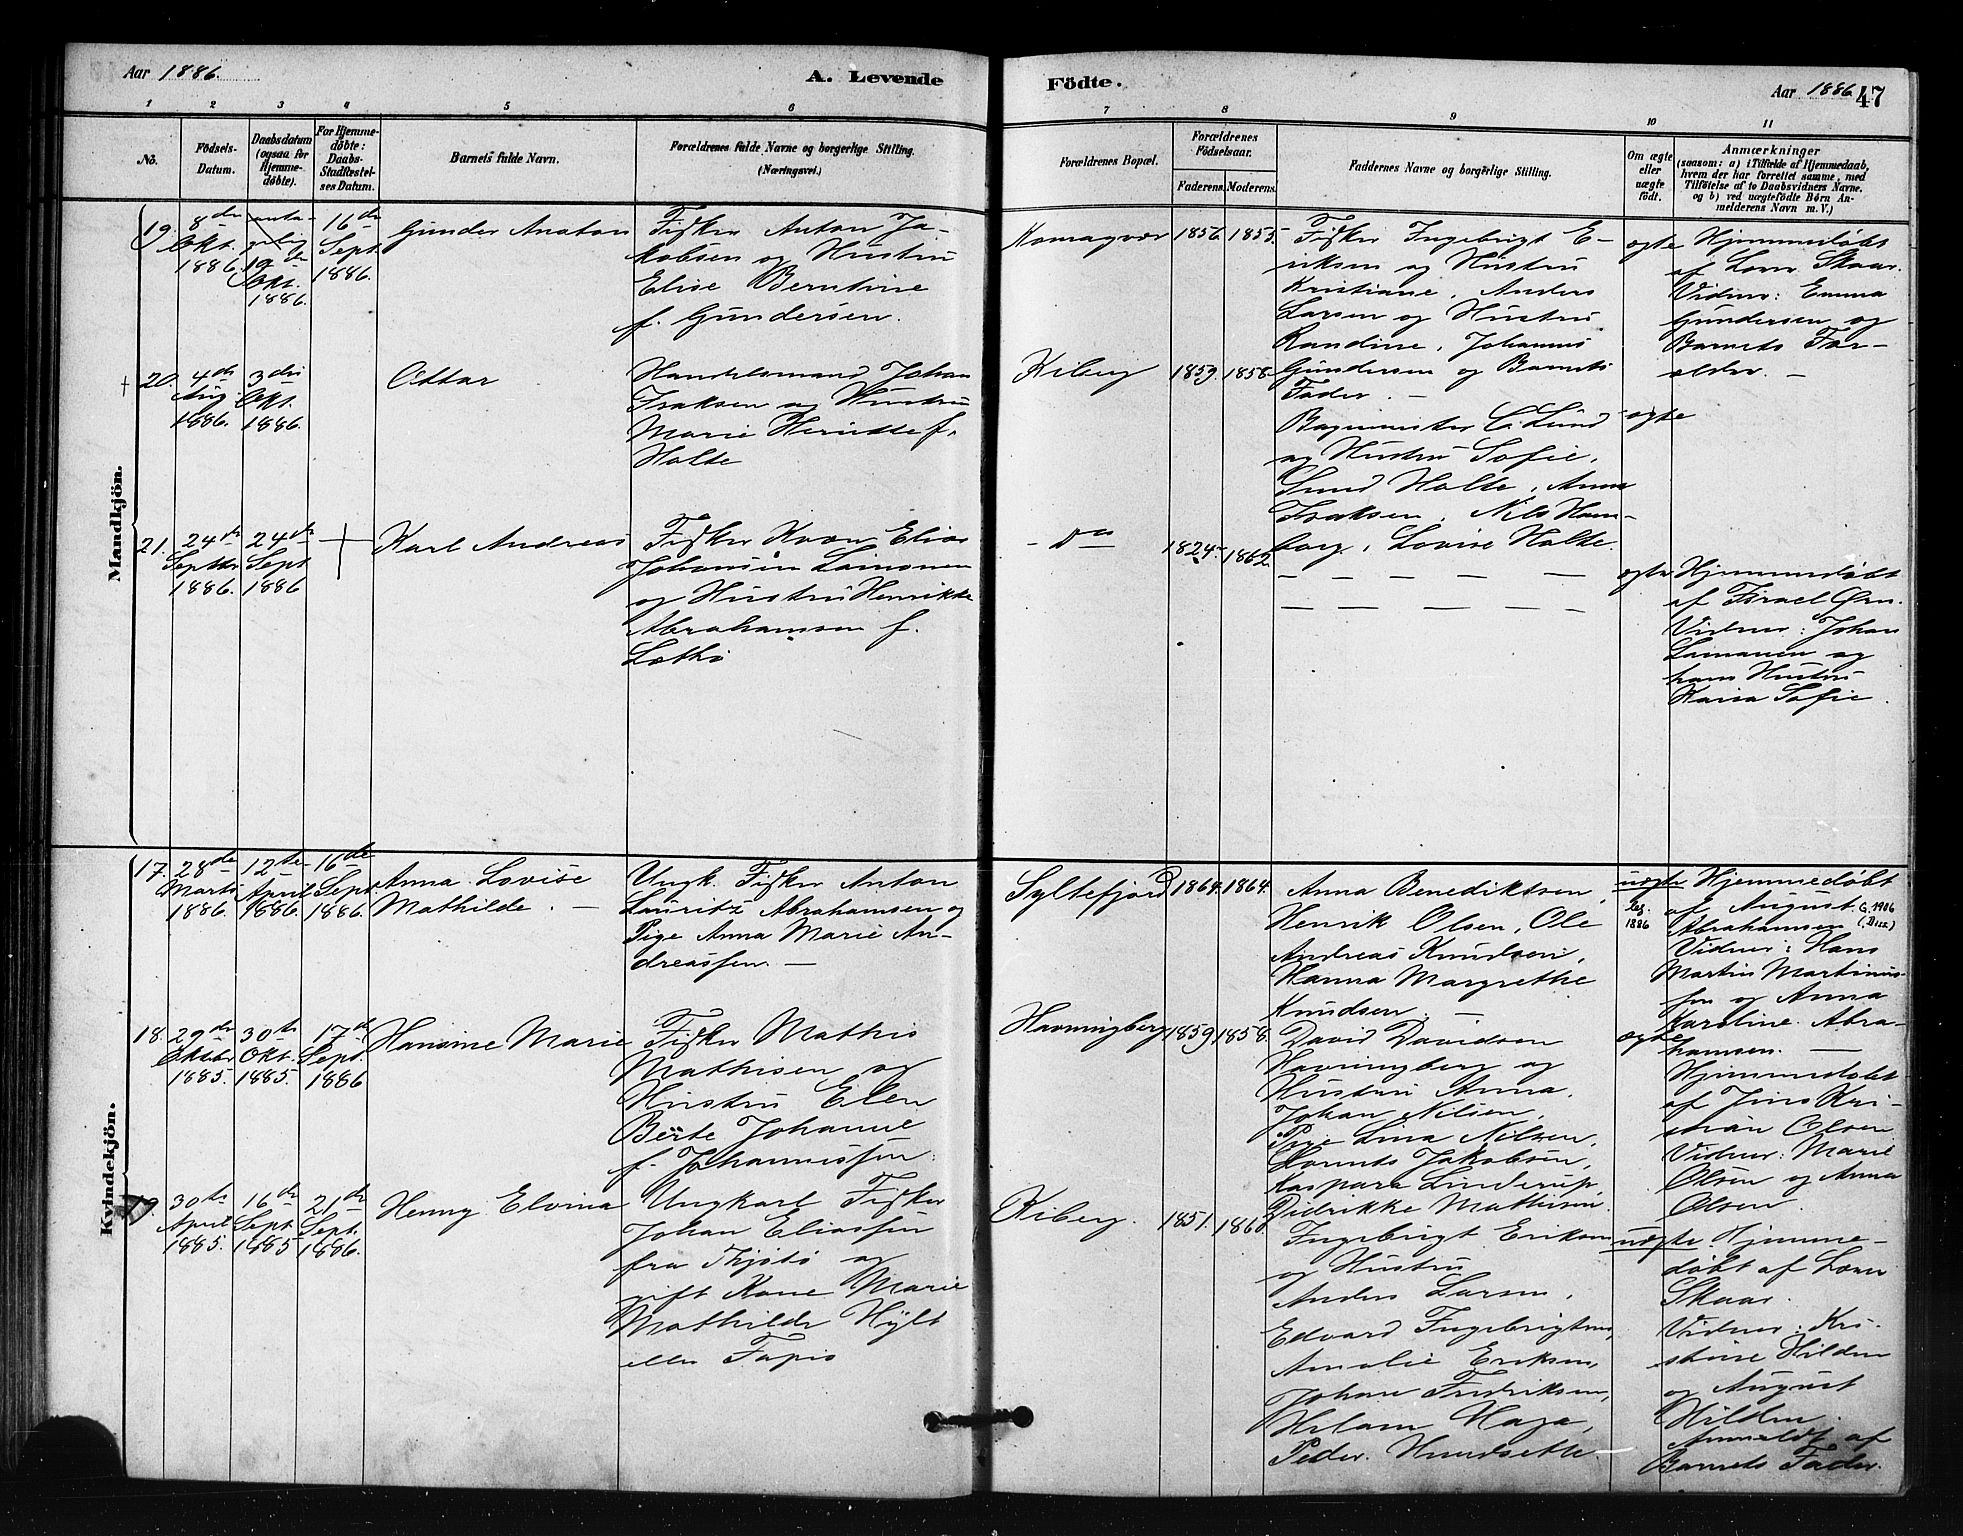 Aar 1886.
A. Levende
Födte.
Aar 1886
47
1 2 3 4 5 6
7 8 9 10 11
No.
Födsels-
Datum.
Daabsdatum
(ogsaa for
Hjemme-
døbte).
For Hjemme-
døbte:
Daabs-
Stadfæstel-
ses Datum.
Barnets fulde Navn.
Forældrenes fulde Navne og borgerlige Stilling.
(Næringsvei.)
Forældrenes Bopæl.
Forældrenes
Födselsaar.
Faderens.
Moderens.
Faddernes Navne og borgerlige Stilling.
Om ægte
eller
uægte
födt.
Anmærkninger
(saasom: a) i Tilfælde af Hjemmedaab,
hvem der har forrettet samme, med
Tilföielse af to Daabsvidners Navne.
og b) ved uægtefödte Børn An-
melderens Navn m. V.)
Mandkjön.
19.
8de
Okt.
1886.
Okt.
1886.
16de
Sept
1886.
Gunder Anaton
Fisker Anton Ja-
kobsen og Hustru
Elise Berntine
f. Gundersen.
Komagvær
1856.
1855.
Fisker Ingebrigt E-
riksen og Hustru
Kristiane, Anders
Larsen og Hustru
Randine, Johannes
Gundersen og Barnets
Fader. —
ægte
Hjemmedøbt
af Lorns Skaar.
Vidner: Emma
Gundersen og
Barnets For-
ældre. —
† 20.
4de
Aug.
1886.
3die
Okt.
1886.
Ottar
Handelsmand Johan
Isaksen og Hustru
Marie f.
Holte
Kiberg
1859.
1858.
C. Lund
og Hustru Sofie,
Lund Holte, Anna
Isaksen, Nils Ham-
borg, Lovise Holte.
ægte
21.
24de
Septbr
1886.
24de
Sept
1886
†
Karl Andreas
Fisker Kvæn Elias
Johansen Lamanen
og Hustru Henrikke
Abrahamsen f.
- Do
1824.
1862.
— — — — —
— — — — —
ægte
Hjemmedøbt
af Israel Ørn.
Vidner: Johan
Lamanen og
hans Hustru
Kaisa Sofie.
Kvindekjön.
17.
28de
Marts
1886.
12te
April
1886.
16de
Sept.
1886.
Anna Lovise
Mathilde. —
Ungk. Fisker Anton
Lauritz Abrahamsen og
Pige Anna Marie An-
dreassen. —
Syltefjord
1864.
1864.
Anna Benediktsen,
Henrik Olsen, Ole
Andreas Knudsen,
Hanna Margrethe
Knudsen. —
uægte
leg.
1886
Hjemmedøbt
af August
Abrahamsen
Vidner: Hans
Martin Martinus-
sen og Anna
Karoline Abra-
hamsen. —
18.
29de
Oktbr
1885.
30te
Okt.
1885.
17de
Sept.
1886
Hansine Marie
Fisker Mathis
Mathisen og
Hustru Elen
Berte Johanne
f. Johannessen.
Havningberg
1859.
1858.
David Davidsen
Havningberg og
Hustru Anna,
Johan Nilsen,
Pige Lina Nilsen,
Jakobsen,
Kaspara Linderup,
Didrikke Mathisen.
ægte
Hjemmedøbt
af Jens Kri-
stian Olsen
Vidner: Marie
Olsen og Anna
Olsen.
19.
30te
April
1885.
16de
Sept
1885
21de
Sept.
1886.
Henny Elvina
Ungkarl Fisker
Johan Eliassen
fra Tjøtø og
gift Kone Marie
Mathilde Hylt
eller
Kiberg.
1851.
1860
Ingebrigt Eriksen
og Hustru
Anders Larsen,
Edvard Ingebrigtsen,
Amalie Eriksen,
Johan Fredriksen,
Peder
uægte
Hjemme-
døbt af Lorns
Skaar.
Vidner: Kri-
stine Hilden
og August
Hilden.
Anmeldt af
Barnets Fader.